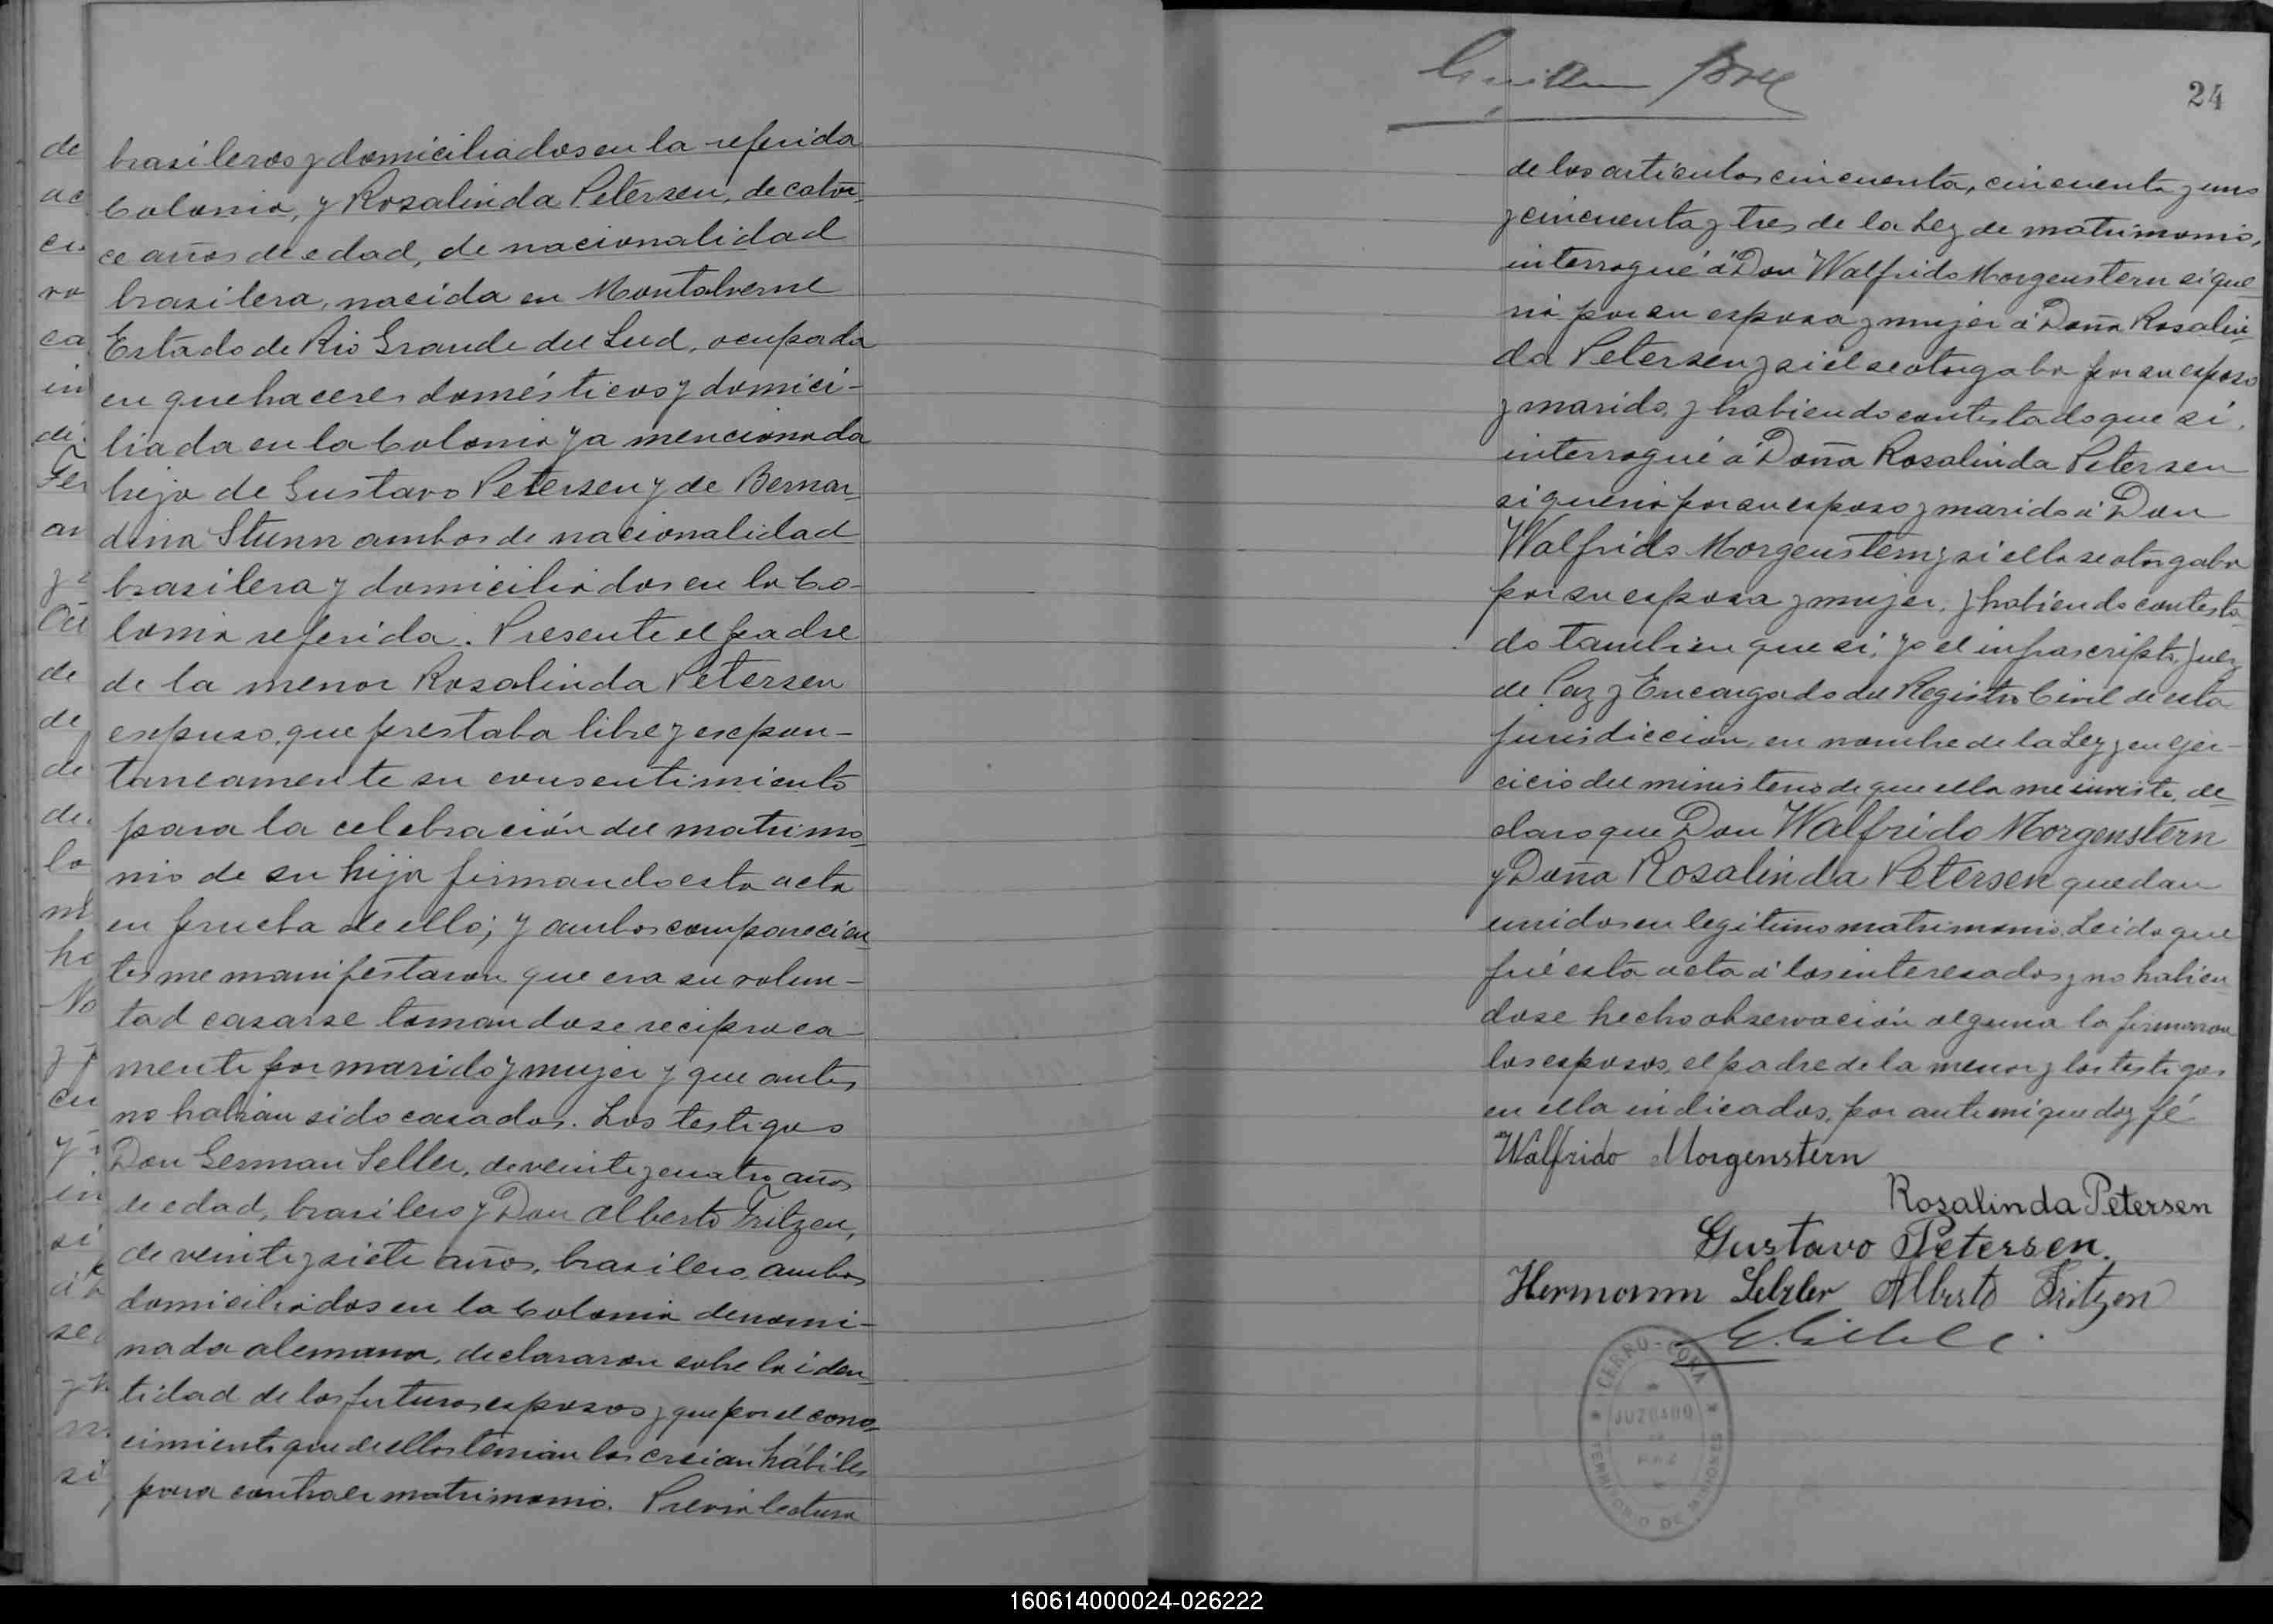 brasileros y domiciliados en la referida
Colonia, y Rosalinda Petersen, de cator-
ce años de edad, de nacionalidad
brasilera, nacida en Montalverne
Estado de Rio Grande del Sud, ocupada
en quehaceres domésticos y domici-
liada en la Colonia ya mencionada
hija de Gustavo Petersen y de Bernar-
dina Stunn ambos de nacionalidad
brasilera y domiciliados en la Co-
lonia referida. Presente el padre
de la menor Rosalinda Petersen
espuso, que prestaba libre y espon-
taneamente su consentimiento
para la celebración del matrimo-
nio de su hija firmando esta acta
en prueba de ello; y ambos comparecien-
tes me manifestaron que era su volun-
tad casarse tomandose reciproca
mente por marido y mujer y que antes
no habían sido casados. Los testigos
Don German Seller, de veinte y cuatro años
de edad, brasilero y Don Alberto Fritzen,
de veinte y siete años, brasilero, ambos
domiciliados en la Colonia denomi-
nada alemana, declararon sobre la iden-
tidad de los futuros esposos y que por el cono-
cimiento que de ellos tenian los creian hábiles
para contraer matrimonio. Previa lectura
24
de los artículos cincuenta, cincuenta y uno
y cincuenta y tres de la Ley de matrimonio,
interrogué á Don Walfrido Morgenstern si que-
ria por su esposa y mujer á Doña Rosalin-
da Petersen y si él se otorgaba por su esposo
y marido, y habiendo contestado que si,
interrogué á Doña Rosalinda Petersen
si queria por su esposo y marido á Don
Walfrido Morgenstern y si ella se otorgaba
por su esposa y mujer, y habiendo contesta-
do tambien que si, yo el infrascripto, Juez
de Paz y Encargado del Registro Civil de esta
jurisdiccion, en nombre de la Ley y en ejer-
cicio del ministerio de que ella me inviste, de
claro que Don Walfrido Morgenstern
y Doña Rosalinda Petersen quedan
unidos en legitimo matrimonio. Leida que
fué esta acta á los interesados y no habien-
dose hecho observación alguna la firmaron
los esposos, el padre de la menor y los testigos
en ella indicados, por ante mi que doy fé
Walfrido Morgenstern
Rosalinda Petersen
Gustavo Petersen.
Hermann Alberto Fritzen
CERRO-CORA
JUZGADO
DE
PAZ
TERRITORIO DE MISIONES
160614000024-026222